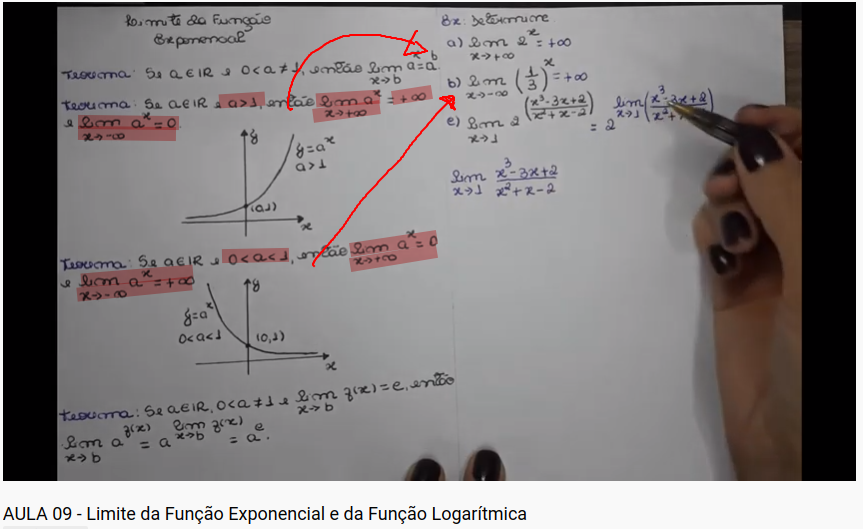 Limite da Função
Exponencial
Teorema: Se a∈IR e 0<a≠1, então lim x→b a^x = a^b.
Teorema: Se a∈IR e a>1, então lim x→+∞ a^x = +∞
e lim x→-∞ a^x = 0
y
y=a^x
a>1
(0,1)
x
Teorema: Se a∈IR e 0<a<1, então lim x→+∞ a^x = 0
e lim x→-∞ a^x = +∞
y
y=a^x
0<a<1
(0,1)
x
Teorema: Se a∈IR, 0<a≠1 e lim x→b f(x) = c, então
lim x→b a^f(x) = a^(lim x→b f(x)) = a^c.
Ex: Determine
a) lim x→+∞ 2^x = +∞
b) lim x→-∞ (1/3)^x = +∞
c) lim x→1 2^((x³-3x+2)/(x²+x-2)) = 2^(lim x→1 (x³-3x+2)/(x²+
lim x→1 (x³-3x+2)/(x²+x-2)
AULA 09 - Limite da Função Exponencial e da Função Logarítmica